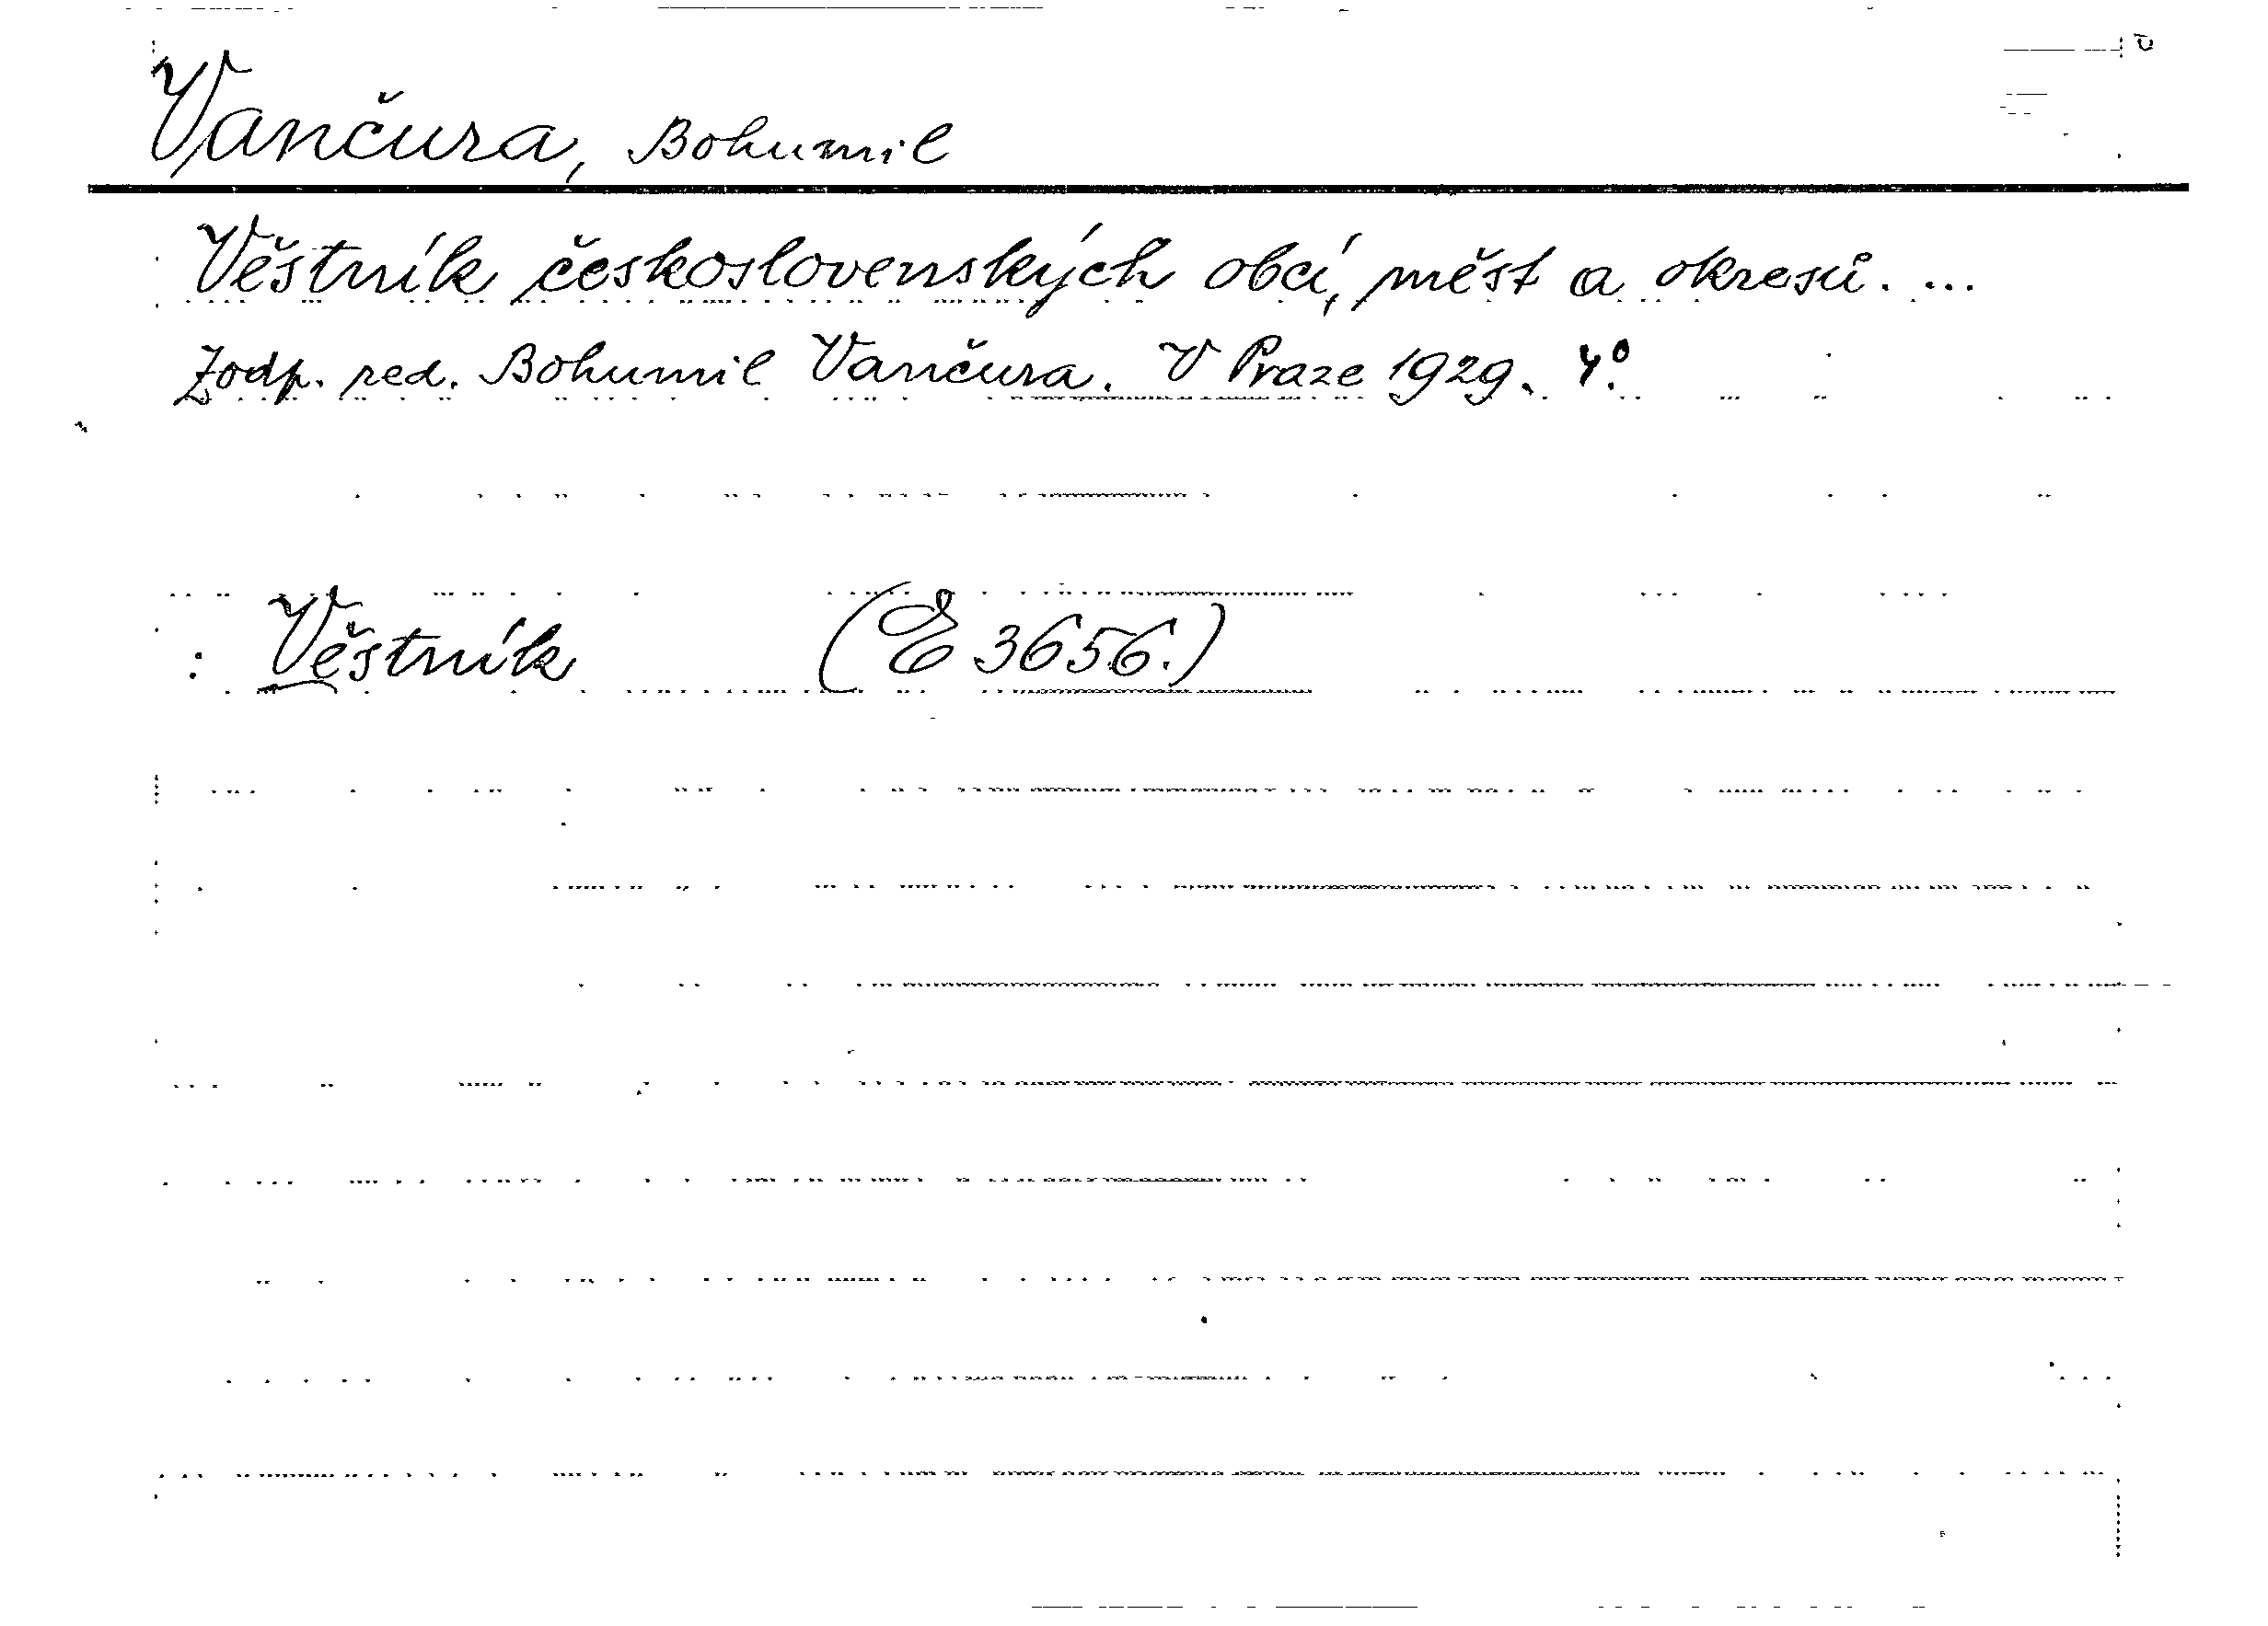 Vančura, Bohumil
Věstník československých obcí, měst a okresů. ...
Zodp. red. Bohumil Vančura. V Praze 1929. 4°.
: Věstník (E 3656.)